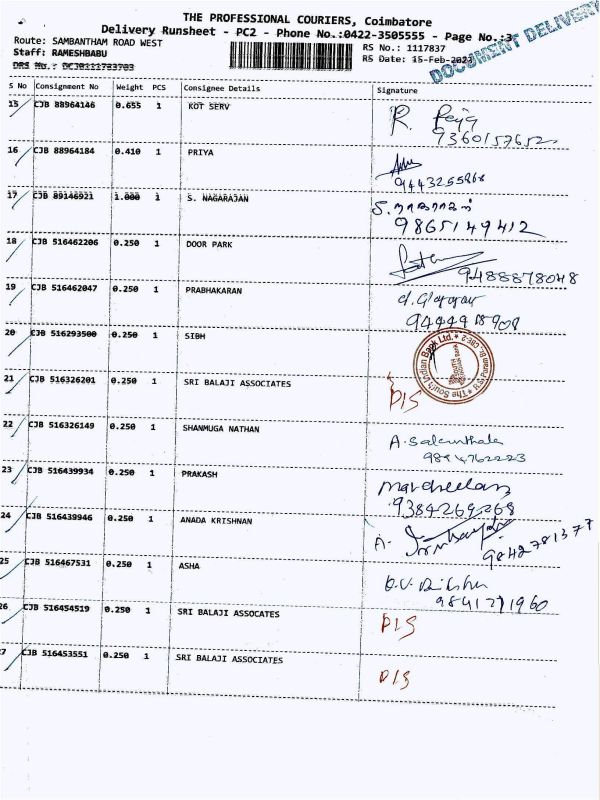 THE PROFESSIONAL COURIERS, Coimbatore
Delivery Runsheet - PC2 - Phone No.:0422-3505555 - Page No.:3
DOCUMENT DELIVERY
Route: SAMBANTHAM ROAD WEST
RS No.: 1117837
Staff: RAMESHBABU
RS Date: 15-Feb-2023
DRS No.:
S No Consignment No Weight PCS Consignee Details Signature
15 CJB 88964146 0.655 1 KOT SERV R.
9360157652
16 CJB 88964184 0.410 1 PRIYA
9443255868
17 CJB 89146921 1.000 1 S. NAGARAJAN S. நாகராஜன்
9865149412
18 CJB 516462206 0.250 1 DOOR PARK
9488878048
19 CJB 516462047 0.250 1 PRABHAKARAN
20 CJB 516293500 0.250 1 SIBM
The South Indian Bank Ltd. * R.S.Puram Br. CBE-2 *
21 CJB 516326201 0.250 1 SRI BALAJI ASSOCIATES DIS
22 CJB 516326149 0.250 1 SHANMUGA NATHAN A.
9894762223
23 CJB 516439934 0.250 1 PRAKASH
9384269268
24 CJB 516439946 0.250 1 ANADA KRISHNAN A.
9842781377
25 CJB 516467531 0.250 1 ASHA
9841771960
26 CJB 516454519 0.250 1 SRI BALAJI ASSOCATES DIS
27 CJB 516453551 0.250 1 SRI BALAJI ASSOCIATES DIS